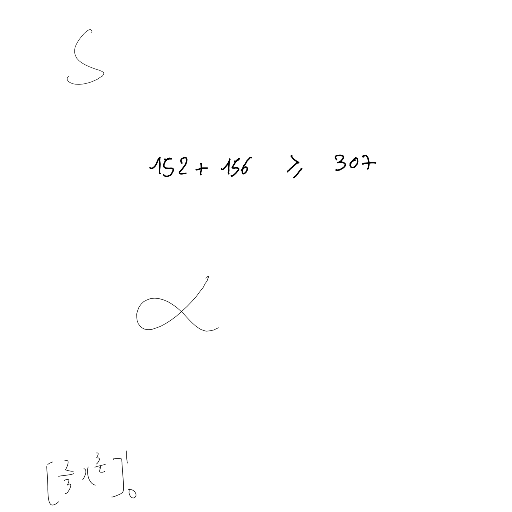 S
152 + 156 ⩾ 307
α
[2/3 x^{3/2}]_0^1